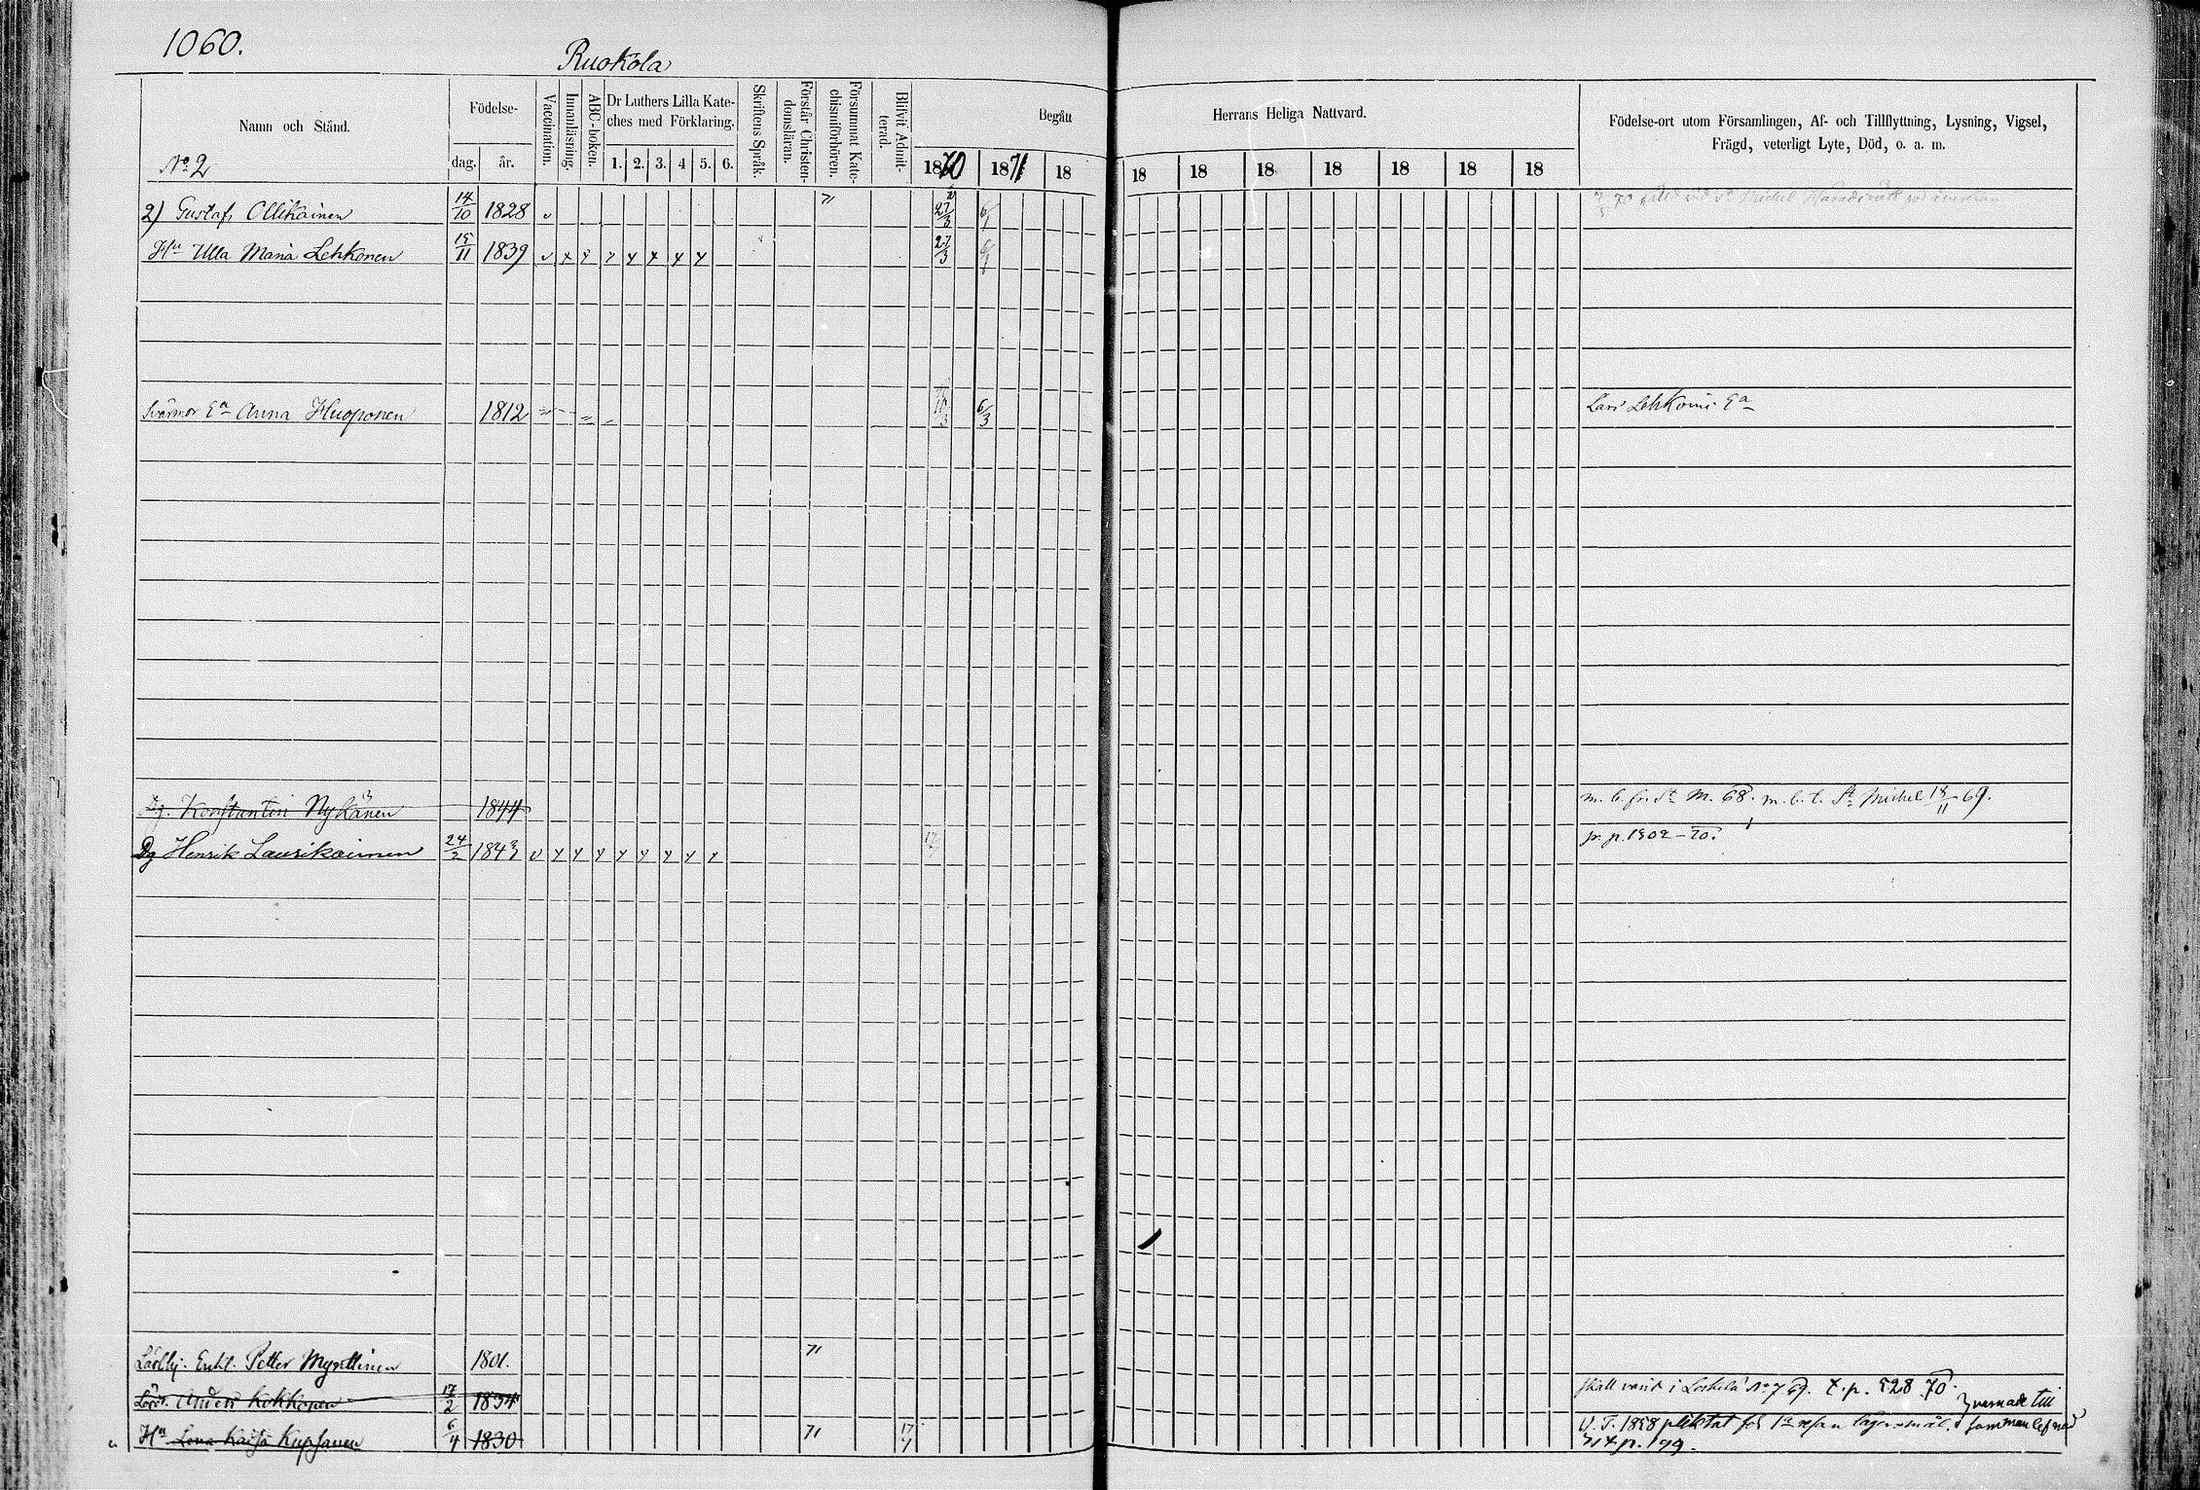 1060.
Ruokola
Namn och Stånd.
Födelse-
dag.
år.
Vaccination.
Innanläsning.
ABC-boken.
Dr Luthers Lilla Kate-
ches med Förklaring.
1. 2. 3. 4 5. 6.
Skriftens Språk.
Förstår Christen-
domsläran.
Försummat Kate-
chismiförhören.
Blifvit Admit-
terad.
Begått
Herrans Heliga Nattvard.
Födelse-ort utom Församlingen, Af- och Tillflyttning, Lysning, Vigsel,
Frägd, veterligt Lyte, Död, o. a. m.
No 2
1870 1871 18 18 18 18 18 18 18 18
2) Gustaf Ollikainen 14/10 1828 v 71 27/3 6/1
Hu Ulla Maria Lehkonen 15/11 1839 27/3 6/1
Svärmor Ea Anna Huoponen 1812 6/3 Lars Lehkoins Ea
Dg. Konstantin Nykänen 1844 m. b. fr. St M. 68. m. b. t. St Michel 18/11 69.
Dg Henrik Laurikainen 24/2 1843 p. p. 1302-70.
Enkl. Petter Mynttinen 1801. 71
Anders Kokkonen 17/2 1834 skall varit i No 7 69. t. p. 528 70.
varnade till
Hu Lena Kaisa Kupsanen 6/4 1830 71 17/7 V. T. 1858 pliktat för 1a resan lägersmål. sammanlefnad
71 t. p. 199.